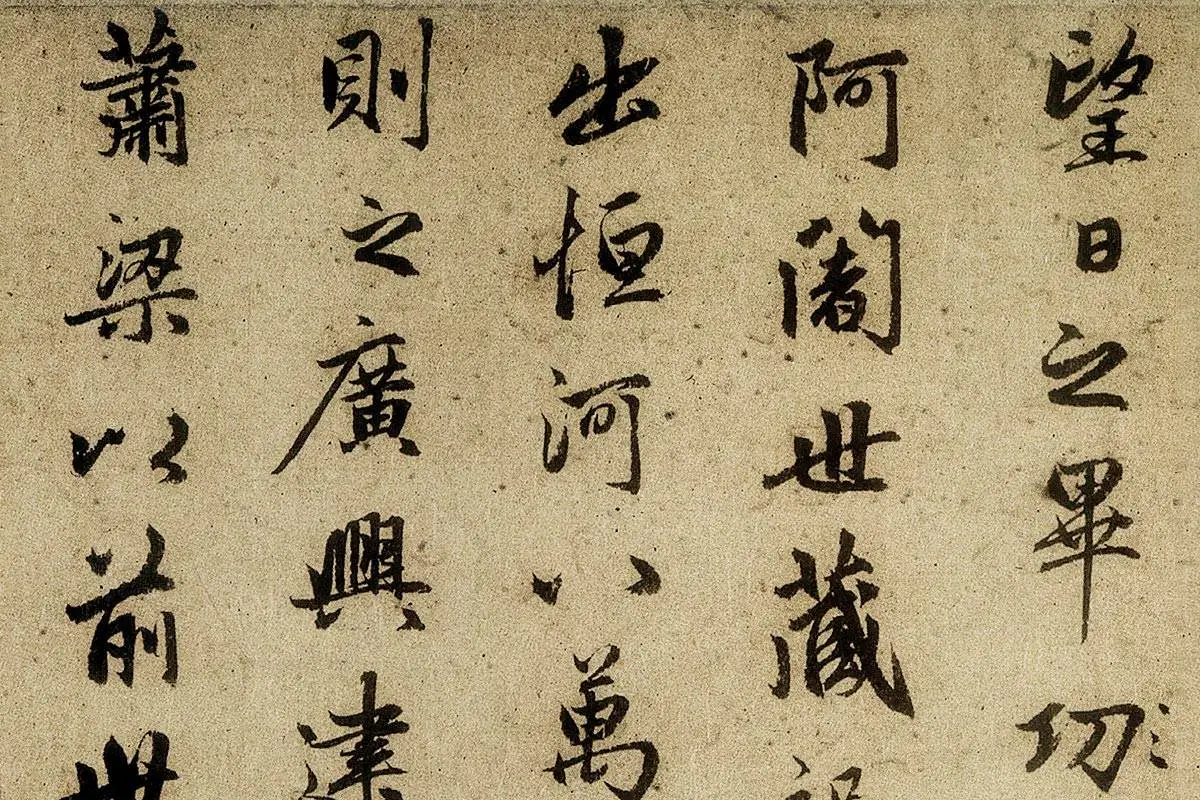 望日之畢功
阿閦世藏
出恒河八萬
則之廣興建
蕭梁以前世